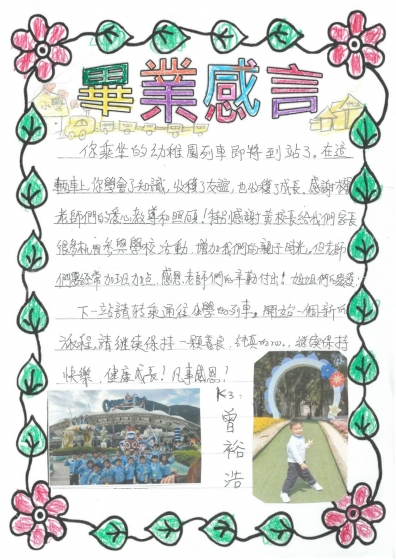 畢業感言
你乘坐的幼稚園列車即將到站了。在這
輛車上你學會了知識，收穫了友誼，也收穫了成長。感謝
老師們的愛心教導和照顧！感謝黃校長給我們家長
很多機會參與學校活動，增加我們的親子時光。但老師
們要經常加班加点，感恩老師們的辛勤付出！
下一站請轉乘通往小學的列車。開始一個新的
旅程，請繼續保持一顆善良、純真的心。繼續保持
快樂、健康成長！凡事感恩！
K3:
曾
裕
浩